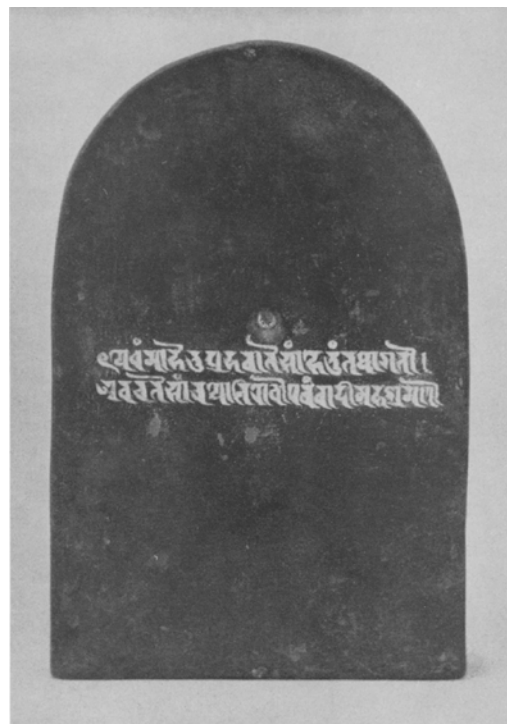 यधर्माहेतुप्रभवातेषांहेतुंतथागतो।
ह्यवदतेषांचयोनिरोधोएवंवादीमहाश्रमण